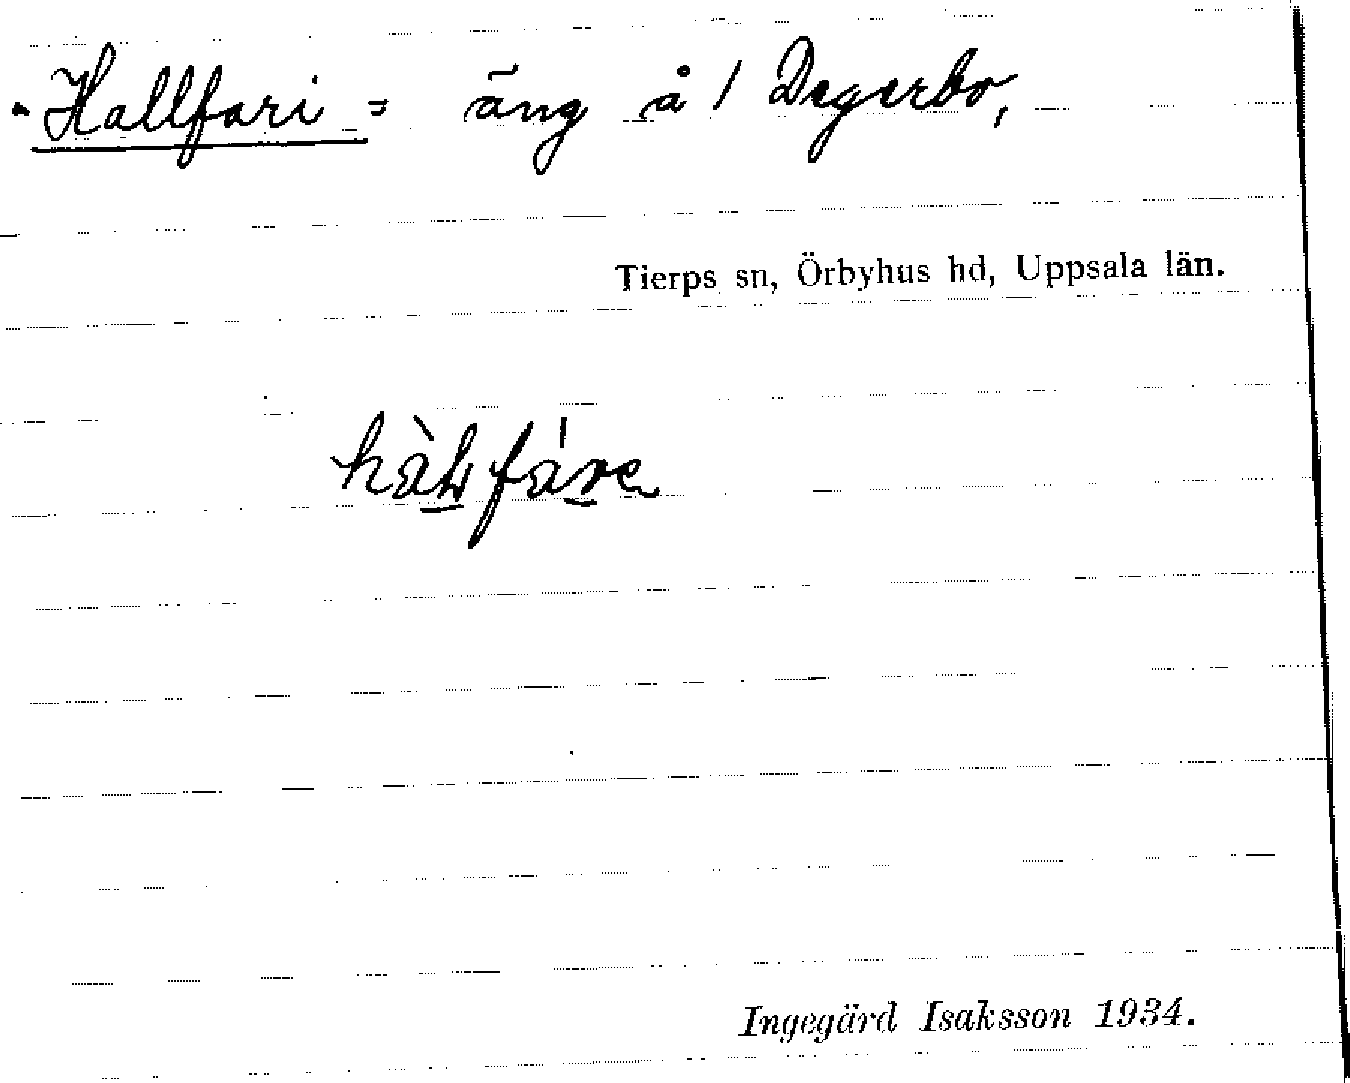 Hallfari = äng å / Degerbo,
Tierps sn, Örbyhus hd, Uppsala län.
Ingegärd Isaksson 1934.